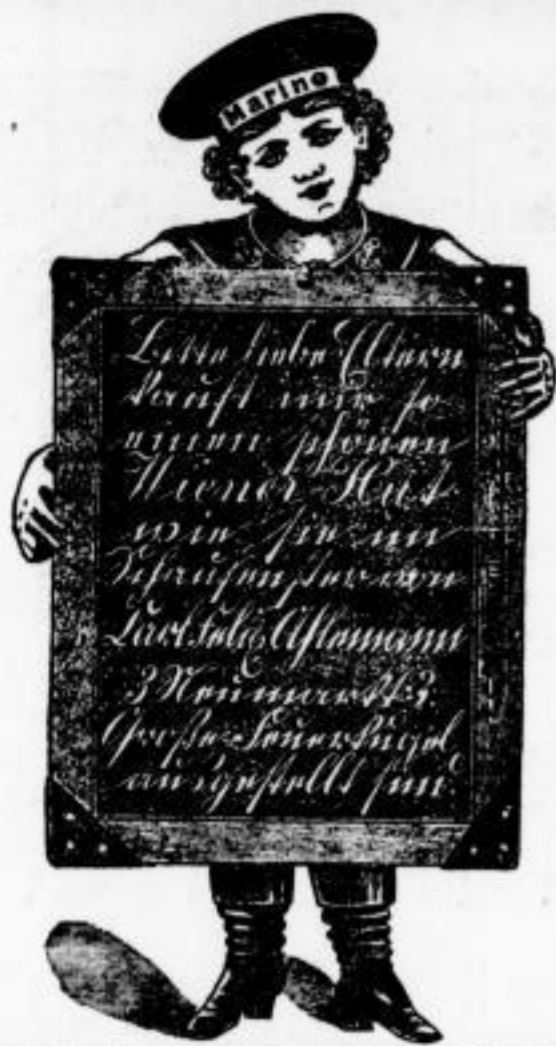 Marine
Bitte liebe Eltern
kauft mir so
einen schönen
Wiener Hut
wie sie im
Schaufenster von
Carl Felix
3 Neumarkt 3.
Große Feuerkugel
ausgestellt sind.